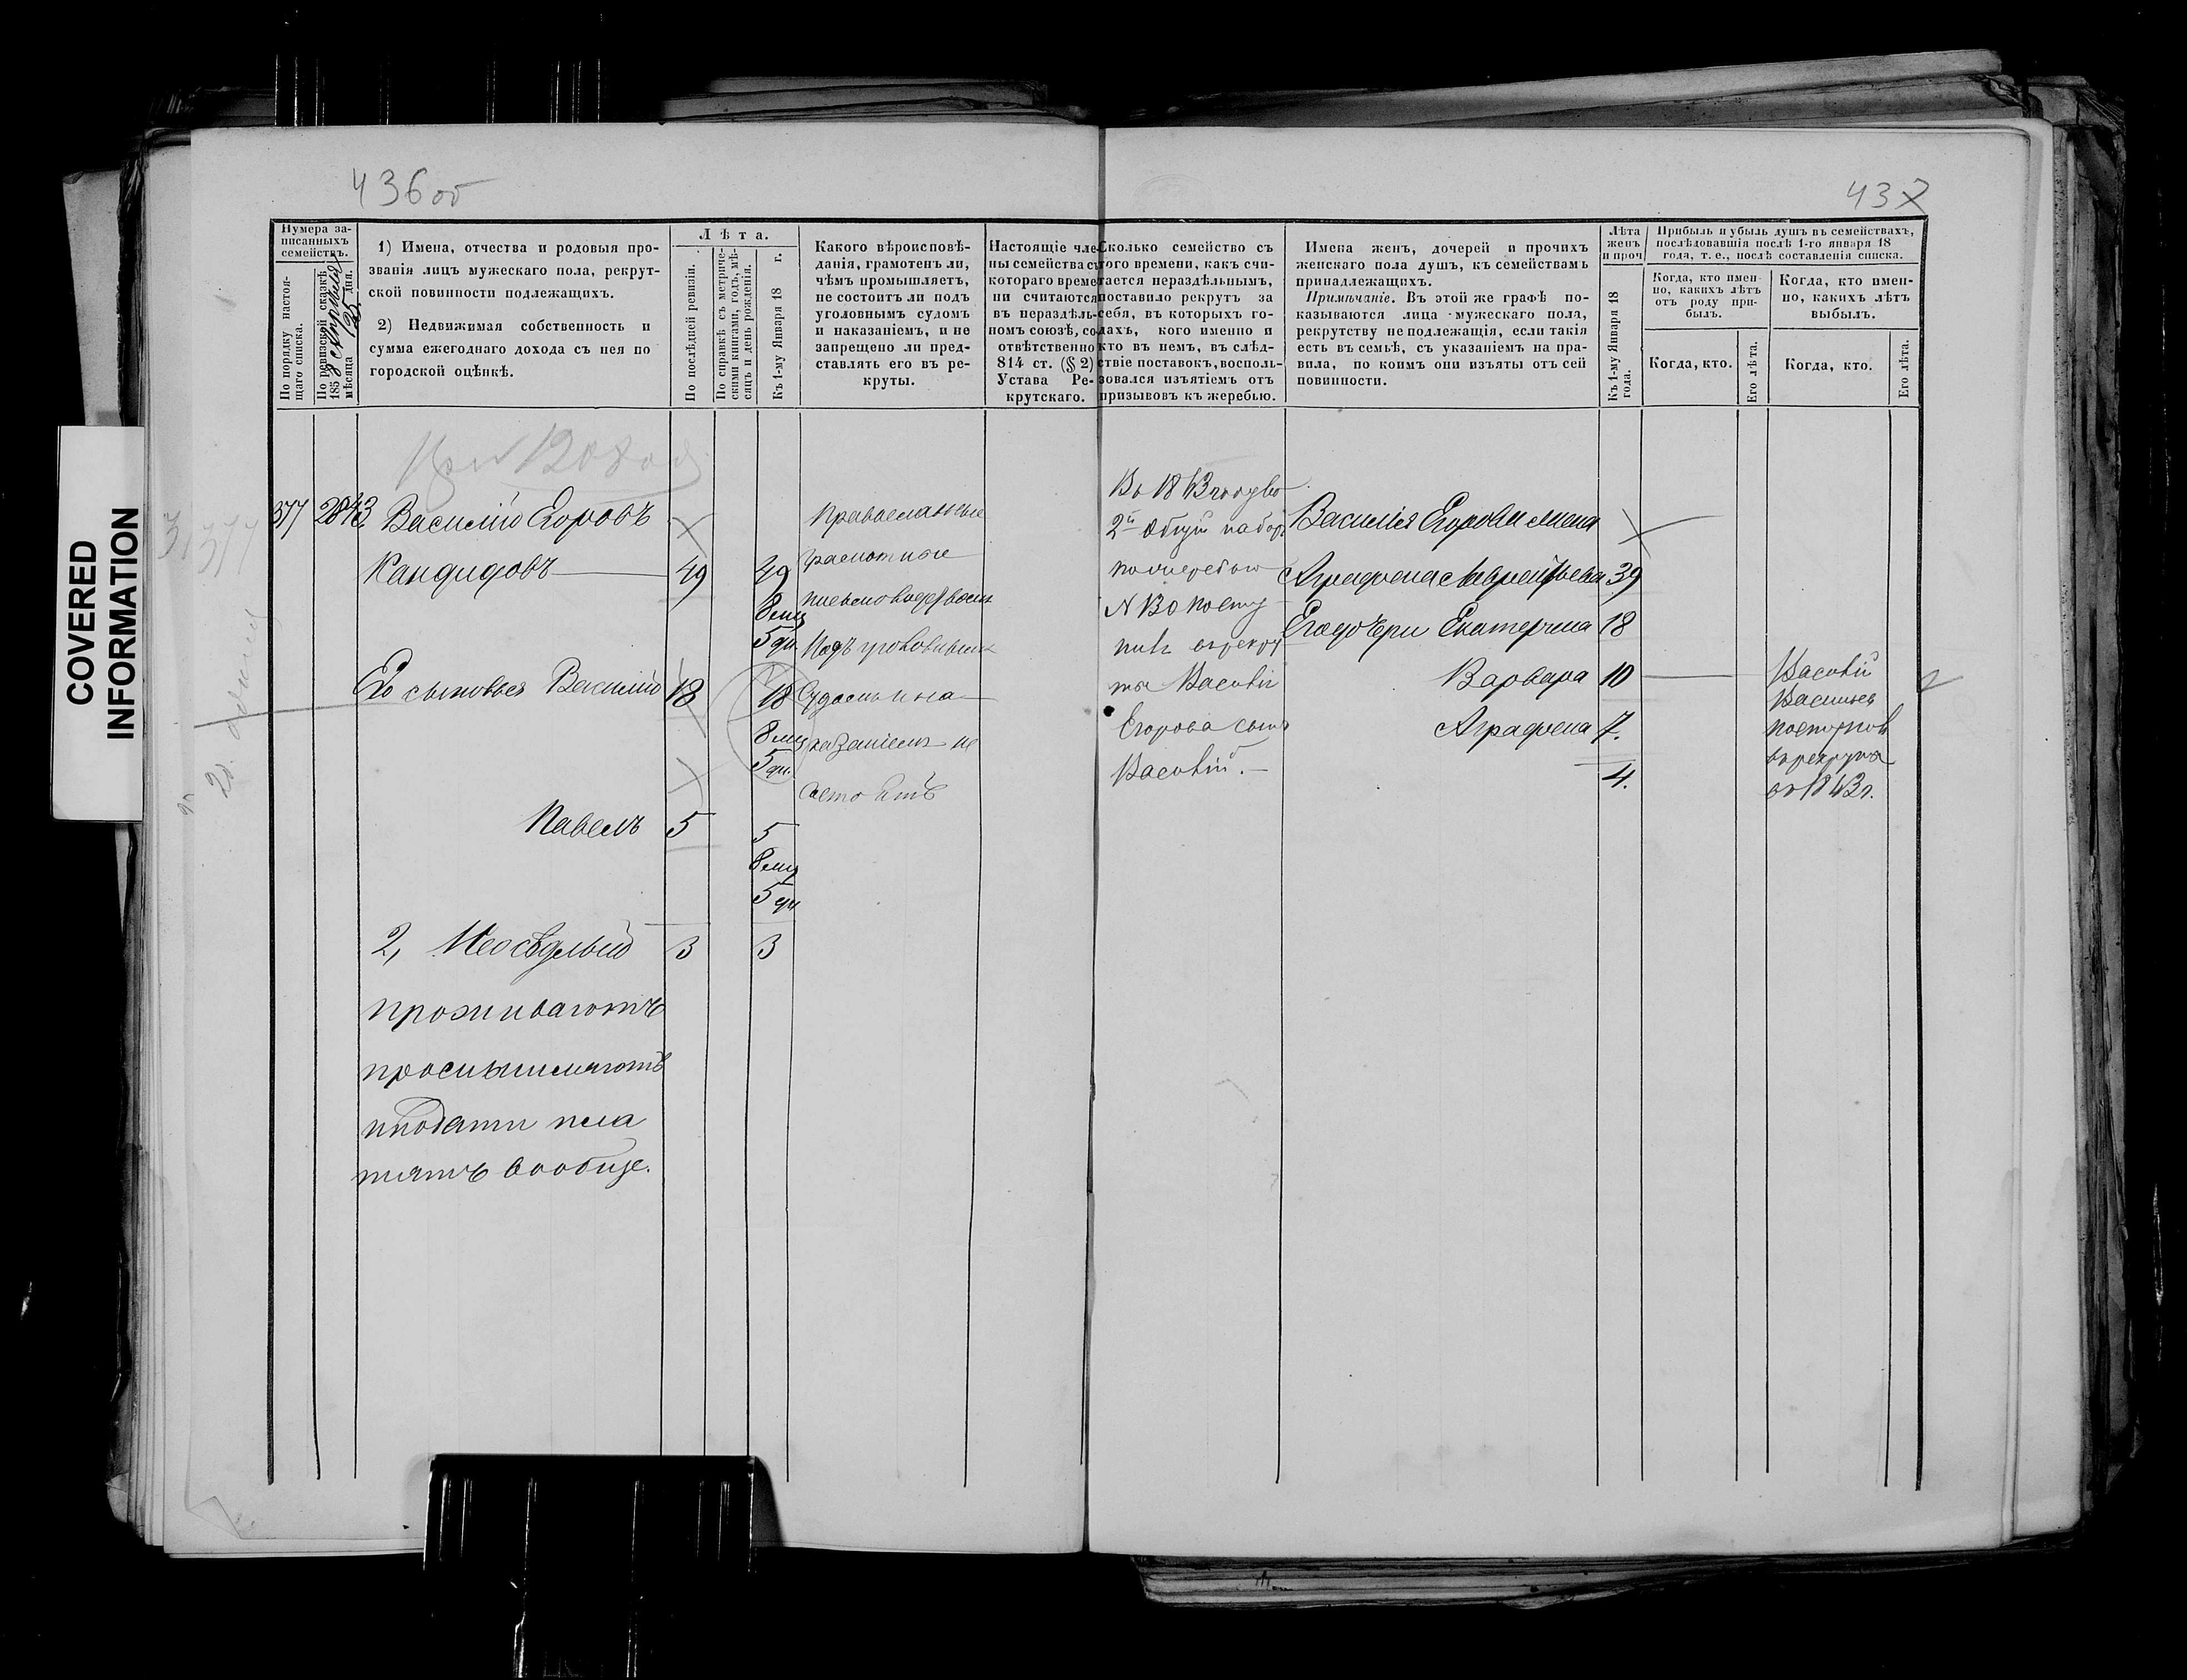 436 об
437
Нумера за-
писанныхъ
семействъ.
По порядку настоя-
щаго списка.
По ревизской сказкѣ
185 8 Апрѣля
мѣсяца 25 дня.
1) Имена, отчества и родовыя про-
званія лицъ мужескаго пола, рекрут-
ской повинности подлежащихъ.
2) Недвижимая собственность и
сумма ежегоднаго дохода съ нея по
городской оцѣнкѣ.
Лѣта.
По послѣдней ревизіи.
По справкѣ съ метриче-
скими книгами, годъ, мѣ-
сяцъ и день рожденія.
Къ 1-му Января 18 г.
Какого вѣроисповѣ-
данія, грамотенъ ли,
чѣмъ промышляетъ,
не состоитъ ли подъ
уголовнымъ судомъ
и наказаніемъ, и не
запрещено ли пред-
ставлять его въ ре-
круты.
Настоящіе чле-
ны семейства съ
котораго време-
ни считаются
въ нераздѣль-
номъ союзѣ, со-
отвѣтственно
814 ст. (§ 2)
Устава Ре-
крутскаго.
Сколько семейство съ
того времени, какъ счи-
тается нераздѣльнымъ,
поставило рекрутъ за
себя, въ которыхъ го-
дахъ, кого именно и
кто въ немъ, въ слѣд-
ствіе поставокъ, восполь-
зовался изъятіемъ отъ
призывовъ къ жеребью.
Имена женъ, дочерей и прочихъ
женскаго пола душъ, къ семействамъ
принадлежащихъ.
Примѣчаніе. Въ этой же графѣ по-
казываются лица мужескаго пола,
рекрутству не подлежащія, если такія
есть въ семьѣ, съ указаніемъ на пра-
вила, по коимъ они изъяты отъ сей
повинности.
Лѣта
женъ
и проч
Къ 1-му Января 18
года.
Прибыль и убыль душъ въ семействахъ,
послѣдовавшія послѣ 1-го января 18
года, т. е., послѣ составленія списка.
Когда, кто имен-
но, какихъ лѣтъ
отъ роду при-
былъ.
Когда, кто имен-
но, какихъ лѣтъ
выбылъ.
Когда, кто.
Его лѣта.
Когда, кто.
Его лѣта.
377 2843 Василій Егоровъ
Кандидовъ 49 49
8 мц
5 дн
Его сыновья Василій 18 18
8 мц
5 дн.
Павелъ 5 5
8 мц
5 дн
2, Неосѣдлый 3 3
проживаютъ
промышляютъ
и подати пла
тятъ вообще.
Православные
грамотные
Подъ уголовнымъ
судомъ и на
казаніемъ не
состоятъ
2й общій наборъ
Егорова сынъ
Василій.
Василія Егорова жена
Аграфена Лаврентьева 39
Его дочери Екатерина 18
Варвара 10
Аграфена 7.
4.
Василій
Васильевъ
поступилъ
въ рекруты